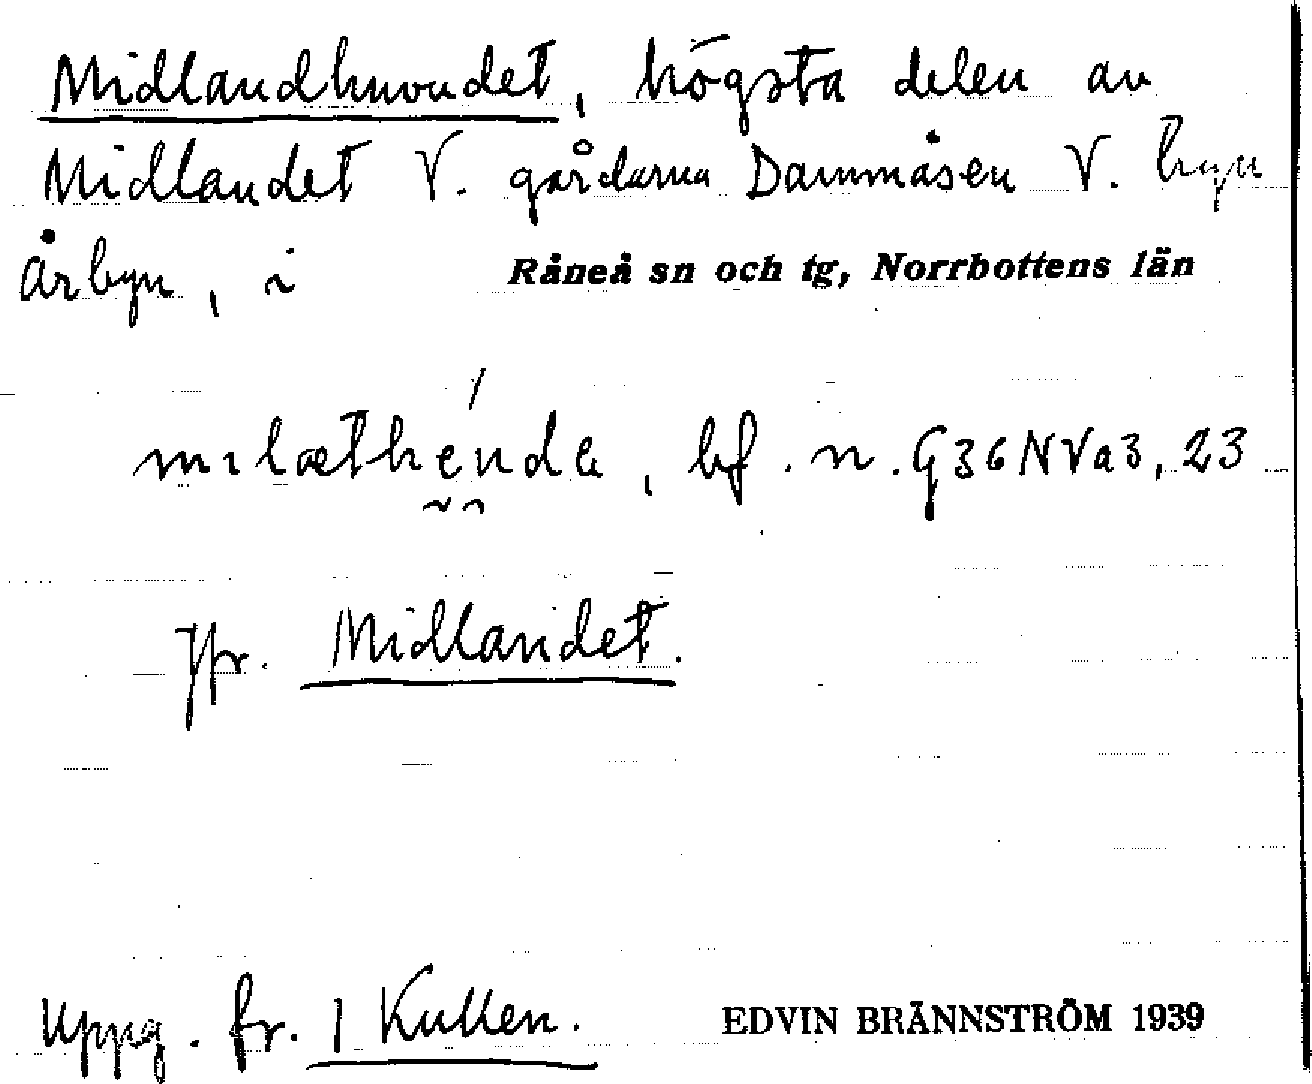 Midlandhuvudet, högsta delen av
Midlandet V. gårdarna Dammåsen V. byn
Årbyn, i Råneå sn och tg, Norrbottens län
bf. n. G36NVa3, 23
Jfr. Midlandet.
Uppg. fr. 1 Kullen. EDVIN BRÄNNSTRÖM 1939